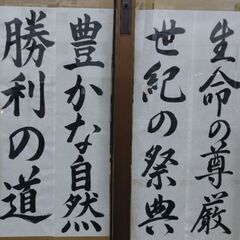 生命の尊厳
世紀の祭典
豊かな自然
勝利の道